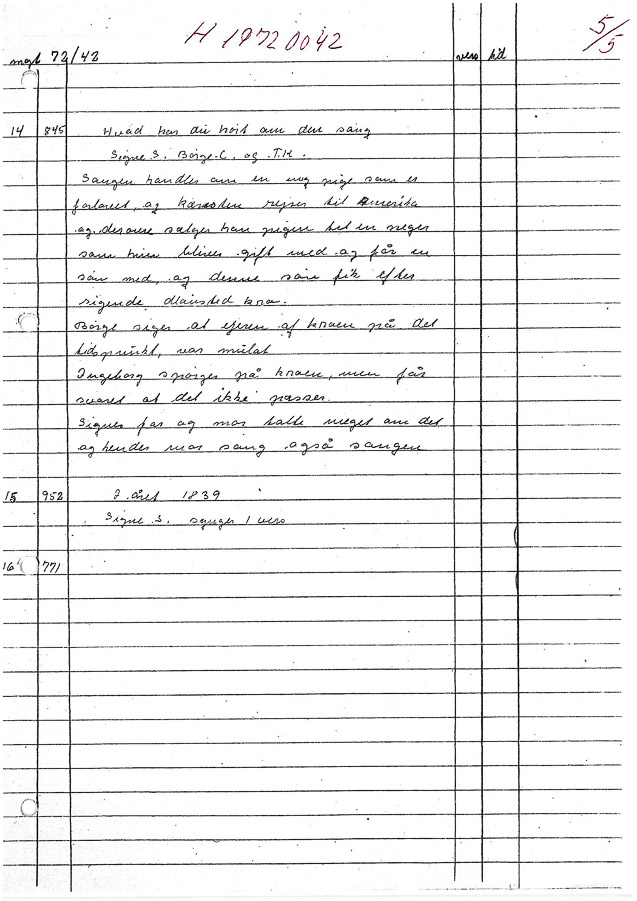 H 19720042
5/5
mgt 72/42 vers tid
14 845 Hvad har du hört om den sang
Signe S. Börge C. og T.K.
Sangen handler om en ung pige som er
forlovet, og kæresten rejser til Amerika
og derovre sælger han pigen til en neger
som hun bliver gift med og får en
sön med, og denne sön fik efter
sigende Ølsted kro.
Börge siger at ejeren af kroen på det
tidspunkt, var mulat
Ingeborg spörger på kroen, men får
svaret at det ikke passer.
Signes far og mor talte meget om det
og hendes mor sang også sangen
15 952 I året 1839
Signe S. synger 1 vers
16 771